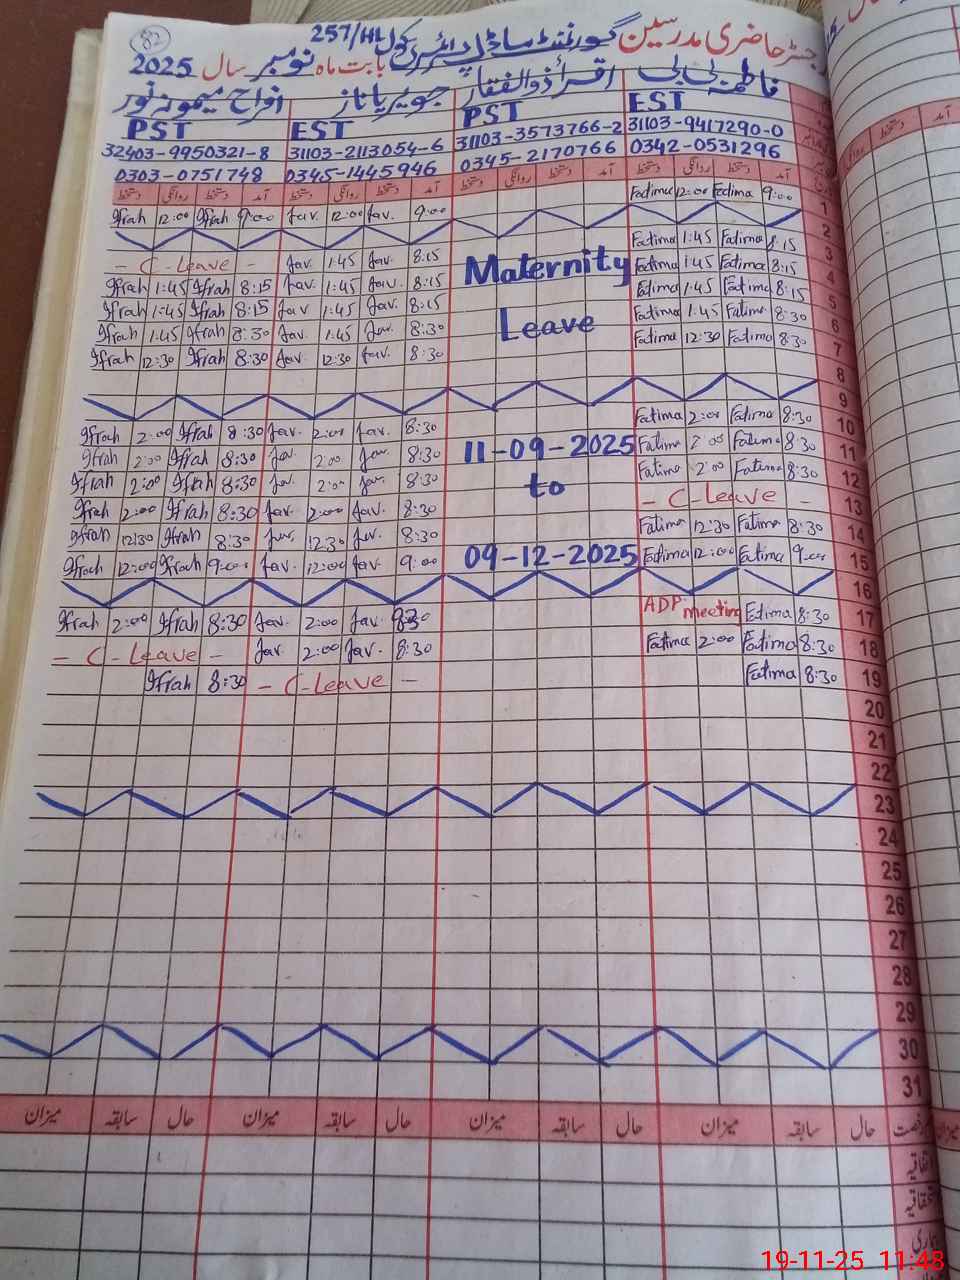 82
رجسٹر حاضری مدرسین گورنمنٹ ماڈل پرائمری سکول 257/HL
بابت ماہ نومبر سال 2025
فاطمہ بی بی اقراُ ذوالفقار جویریا ناز افراح میمونہ نور
EST PST EST PST
31103-9417290-0 31103-3573766-2 31103-2113054-6 32403-9950321-8
0342-0531296 0345-2170766 0345-1445946 0303-0751748
آمد دستخط روانگی دستخط آمد دستخط روانگی دستخط آمد دستخط روانگی دستخط آمد دستخط روانگی دستخط
1 9:00 Fatima 12:00 Fatima 9:00 Jav. 12:00 Jav. 9:00 Ifrah 12:00 Ifrah
2
3 8:15 Fatima 1:45 Fatima 8:15 Jav. 1:45 Jav. - C-Leave -
4 8:15 Fatima 1:45 Fatima Maternity 8:15 Jav. 1:45 Jav. 8:15 Ifrah 1:45 Ifrah
5 8:15 Fatima 1:45 Fatima 8:15 Jav. 1:45 Jav 8:15 Ifrah 1:45 Ifrah
6 8:30 Fatima 1:45 Fatima Leave 8:30 Jav. 1:45 Jav 8:30 Ifrah 1:45 Ifrah
7 8:30 Fatima 12:30 Fatima 8:30 Jav. 12:30 Jav. 8:30 Ifrah 12:30 Ifrah
8
9
10 8:30 Fatima 2:00 Fatima 8:30 Jav. 2:00 Jav. 8:30 Ifrah 2:00 Ifrah
11 8:30 Fatima 2:00 Fatima 11-09-2025 8:30 Jav. 2:00 Jav. 8:30 Ifrah 2:00 Ifrah
12 8:30 Fatima 2:00 Fatima to 8:30 Jav. 2:00 Jav. 8:30 Ifrah 2:00 Ifrah
13 - C-Leave - 8:30 Jav. 2:00 Jav. 8:30 Ifrah 2:00 Ifrah
14 8:30 Fatima 12:30 Fatima 8:30 Jav. 12:30 Jav. 8:30 Ifrah 12:30 Ifrah
15 9:00 Fatima 12:00 Fatima 09-12-2025 9:00 Jav. 12:00 Jav. 9:00 Ifrah 12:00 Ifrah
16
17 8:30 Fatima ADP meeting 8:30 Jav. 2:00 Jav. 8:30 Ifrah 2:00 Ifrah
18 8:30 Fatima 2:00 Fatima 8:30 Jav. 2:00 Jav. - C-Leave -
19 8:30 Fatima - C-Leave - 8:30 Ifrah
20
21
22
23
24
25
26
27
28
29
30
31
رخصت حال سابقہ میزان حال سابقہ میزان حال سابقہ میزان حال سابقہ میزان
اتفاقیہ
استحقاقیہ
بیماری
19-11-25 11:48